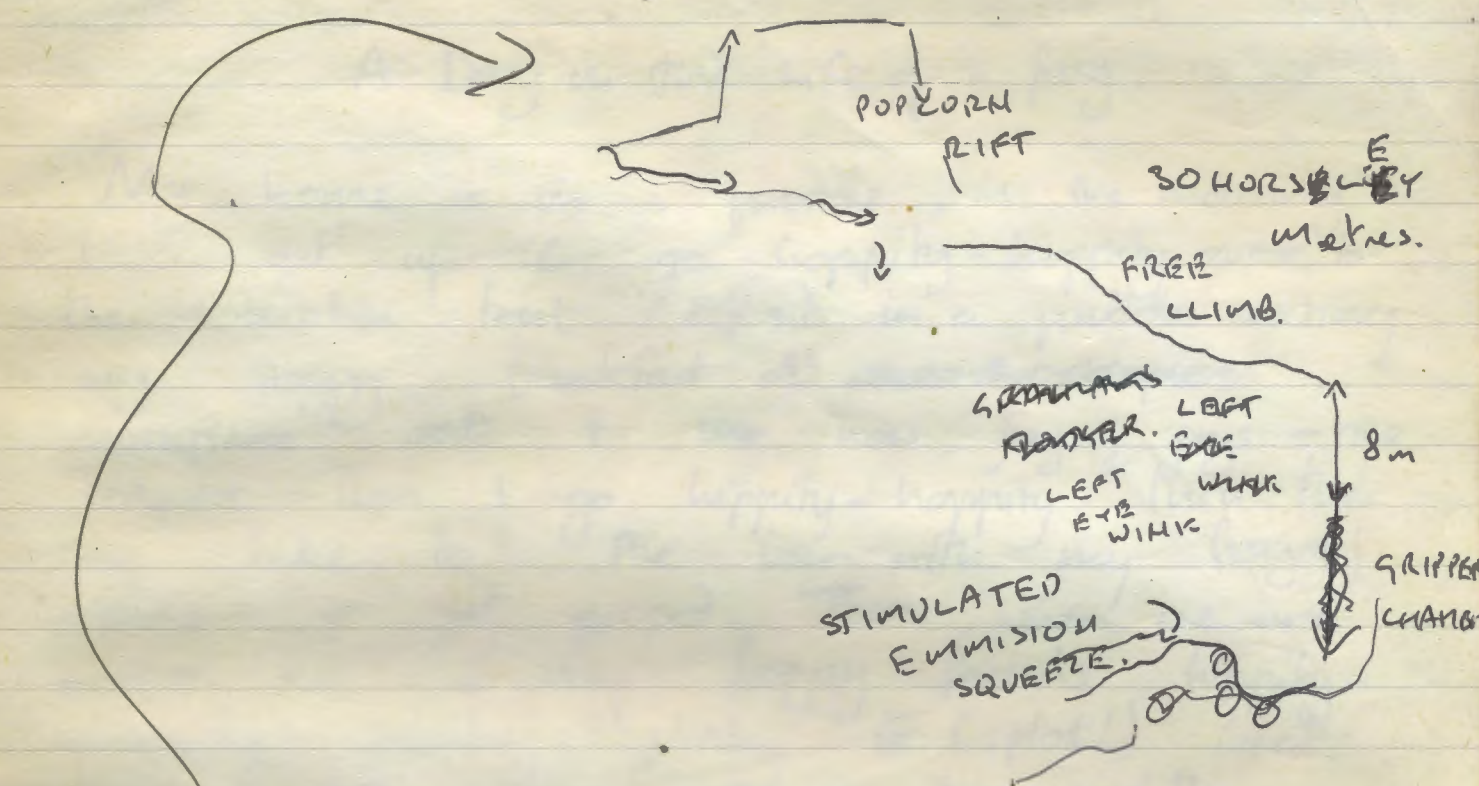 POPCORN
RIFT
30 HORSELEY
Metres.
FREE
CLIMB.
LEFT
EYE
WINK
LEFT
EYE
WINK
8m
GRIPPER
CHAMB
STIMULATED
EMMISION
SQUEEZE.